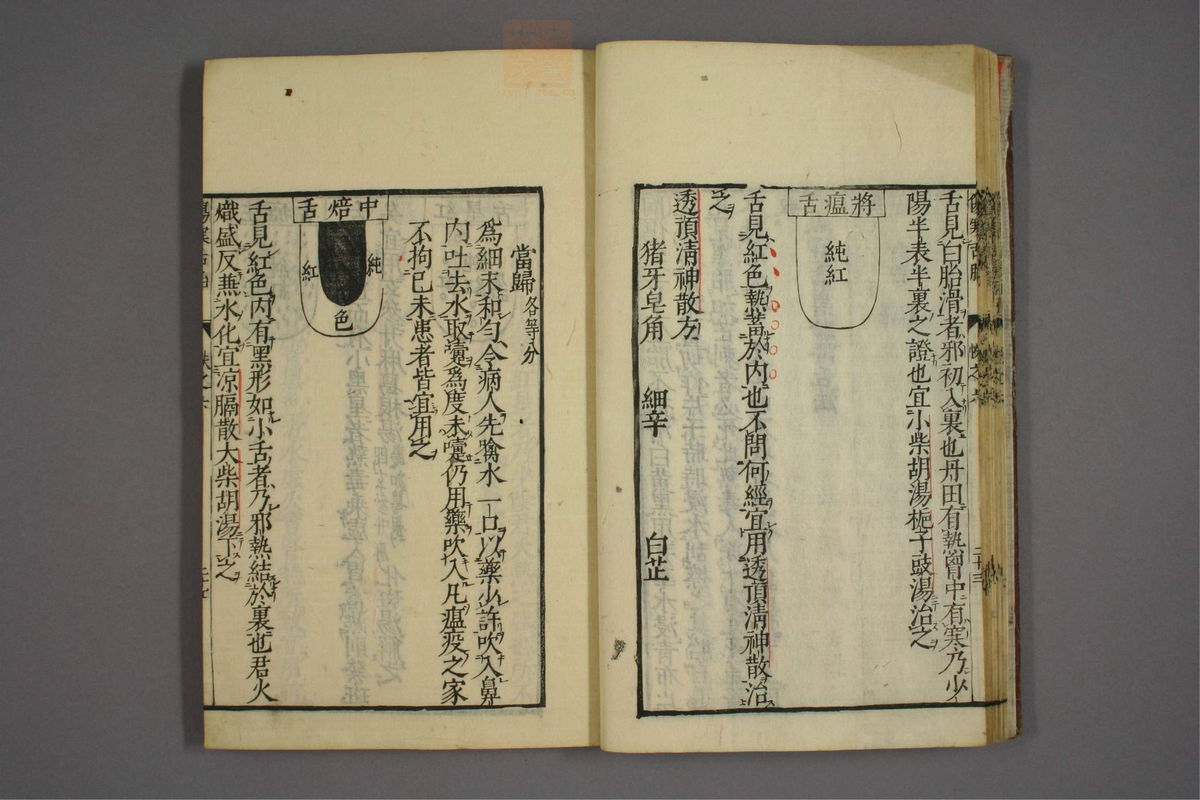 舌見白胎滑者邪初入裏也丹田有熱胷中有寒乃少
陽半表半裏之證也宜小柴胡湯梔子豉湯治之
將瘟舌
純紅
舌見紅色熱蓄於内也不問何經宜用透頂清神散治
之
透頂清神散方
猪牙皂角　細辛　白芷
當歸各等分
爲細末和勻令病人先㗛水一口以藥少許吹入鼻
内吐去水取嚏爲度未嚏仍用藥吹入凡瘟疫之家
不拘已未患者皆宜用之
中焙舌
純
紅
色
舌見紅色内有黑形如小舌者乃邪熱結於裏也君火
熾盛反兼水化宜凉膈散大柴胡湯下之